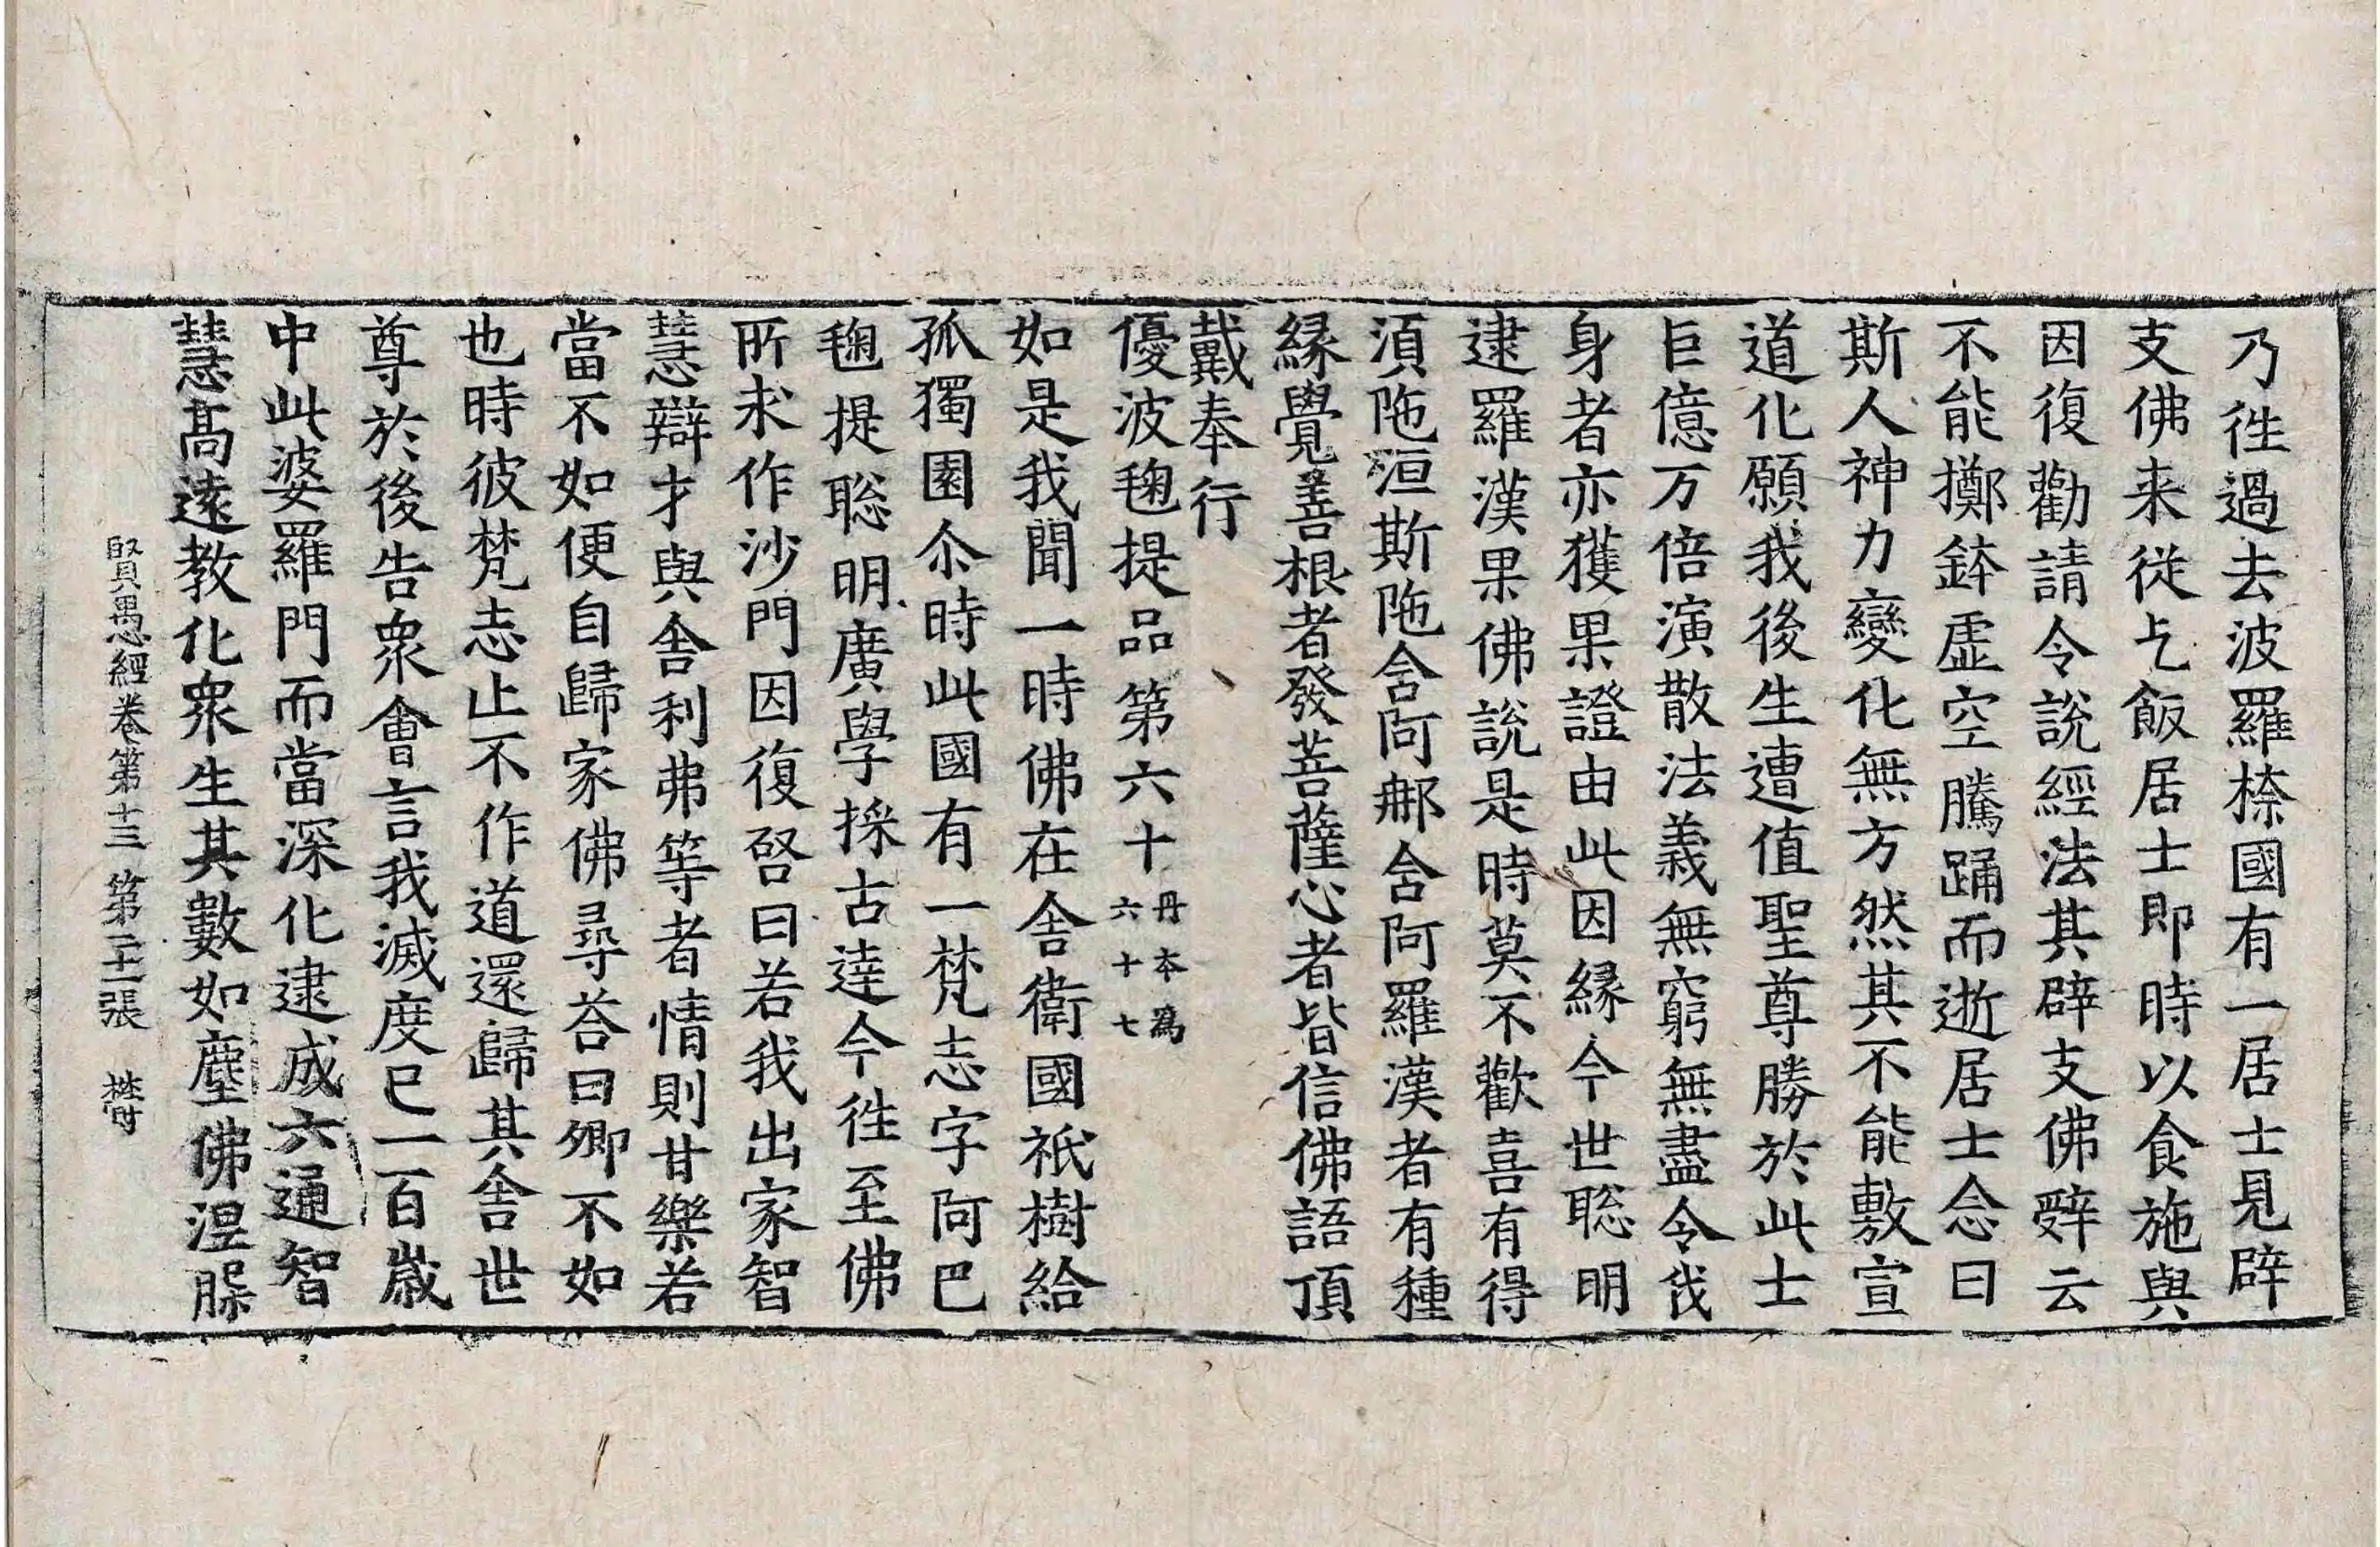 乃徃過去波羅㮈國有一居士見辟
支佛来従乞飯居士即時以食施與
因復勸請令説經法其辟支佛辤云
不能擲鉢虛空騰踊而逝居士念曰
斯人神力變化無方然其不能敷宣
道化願我後生遭值聖尊勝於此士
巨億万倍演散法義無窮無盡令我
身者亦獲果證由此因緣今世聡明
逮羅漢果佛說是時莫不歡喜有得
湏陁洹斯陁含阿那含阿羅漢者有種
緣覺善根者發菩薩心者皆信佛語頂
戴奉行
優波毱提品第六十丹本為六十七
如是我聞一時佛在舍衛國祇樹給
孤獨園尒時此國有一梵志字阿巴
毱提聡明廣學採古達今徃至佛
所求作沙門因復啓曰若我出家智
慧辯才與舍利弗等者情則甘樂若
當不如便自歸家佛尋荅曰卿不如
也時彼梵志止不作道還歸其舍世
尊於後告衆會言我滅度已一百歲
中此婆羅門而當深化逮成六通智
慧高逺教化衆生其數如塵佛涅槃
賢愚經卷第十三 第二十二張